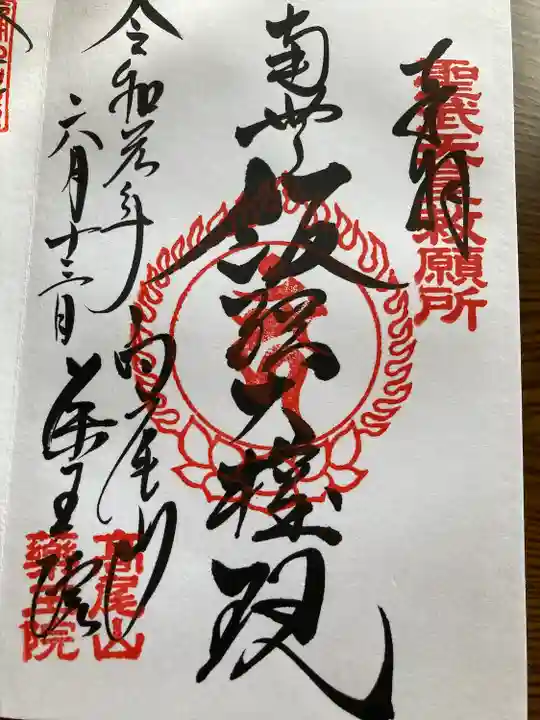 奉拝
聖武天皇勅願所
南無飯綱大権現
令和元年
六月十三日
高尾山
薬王院
高尾山
薬王院